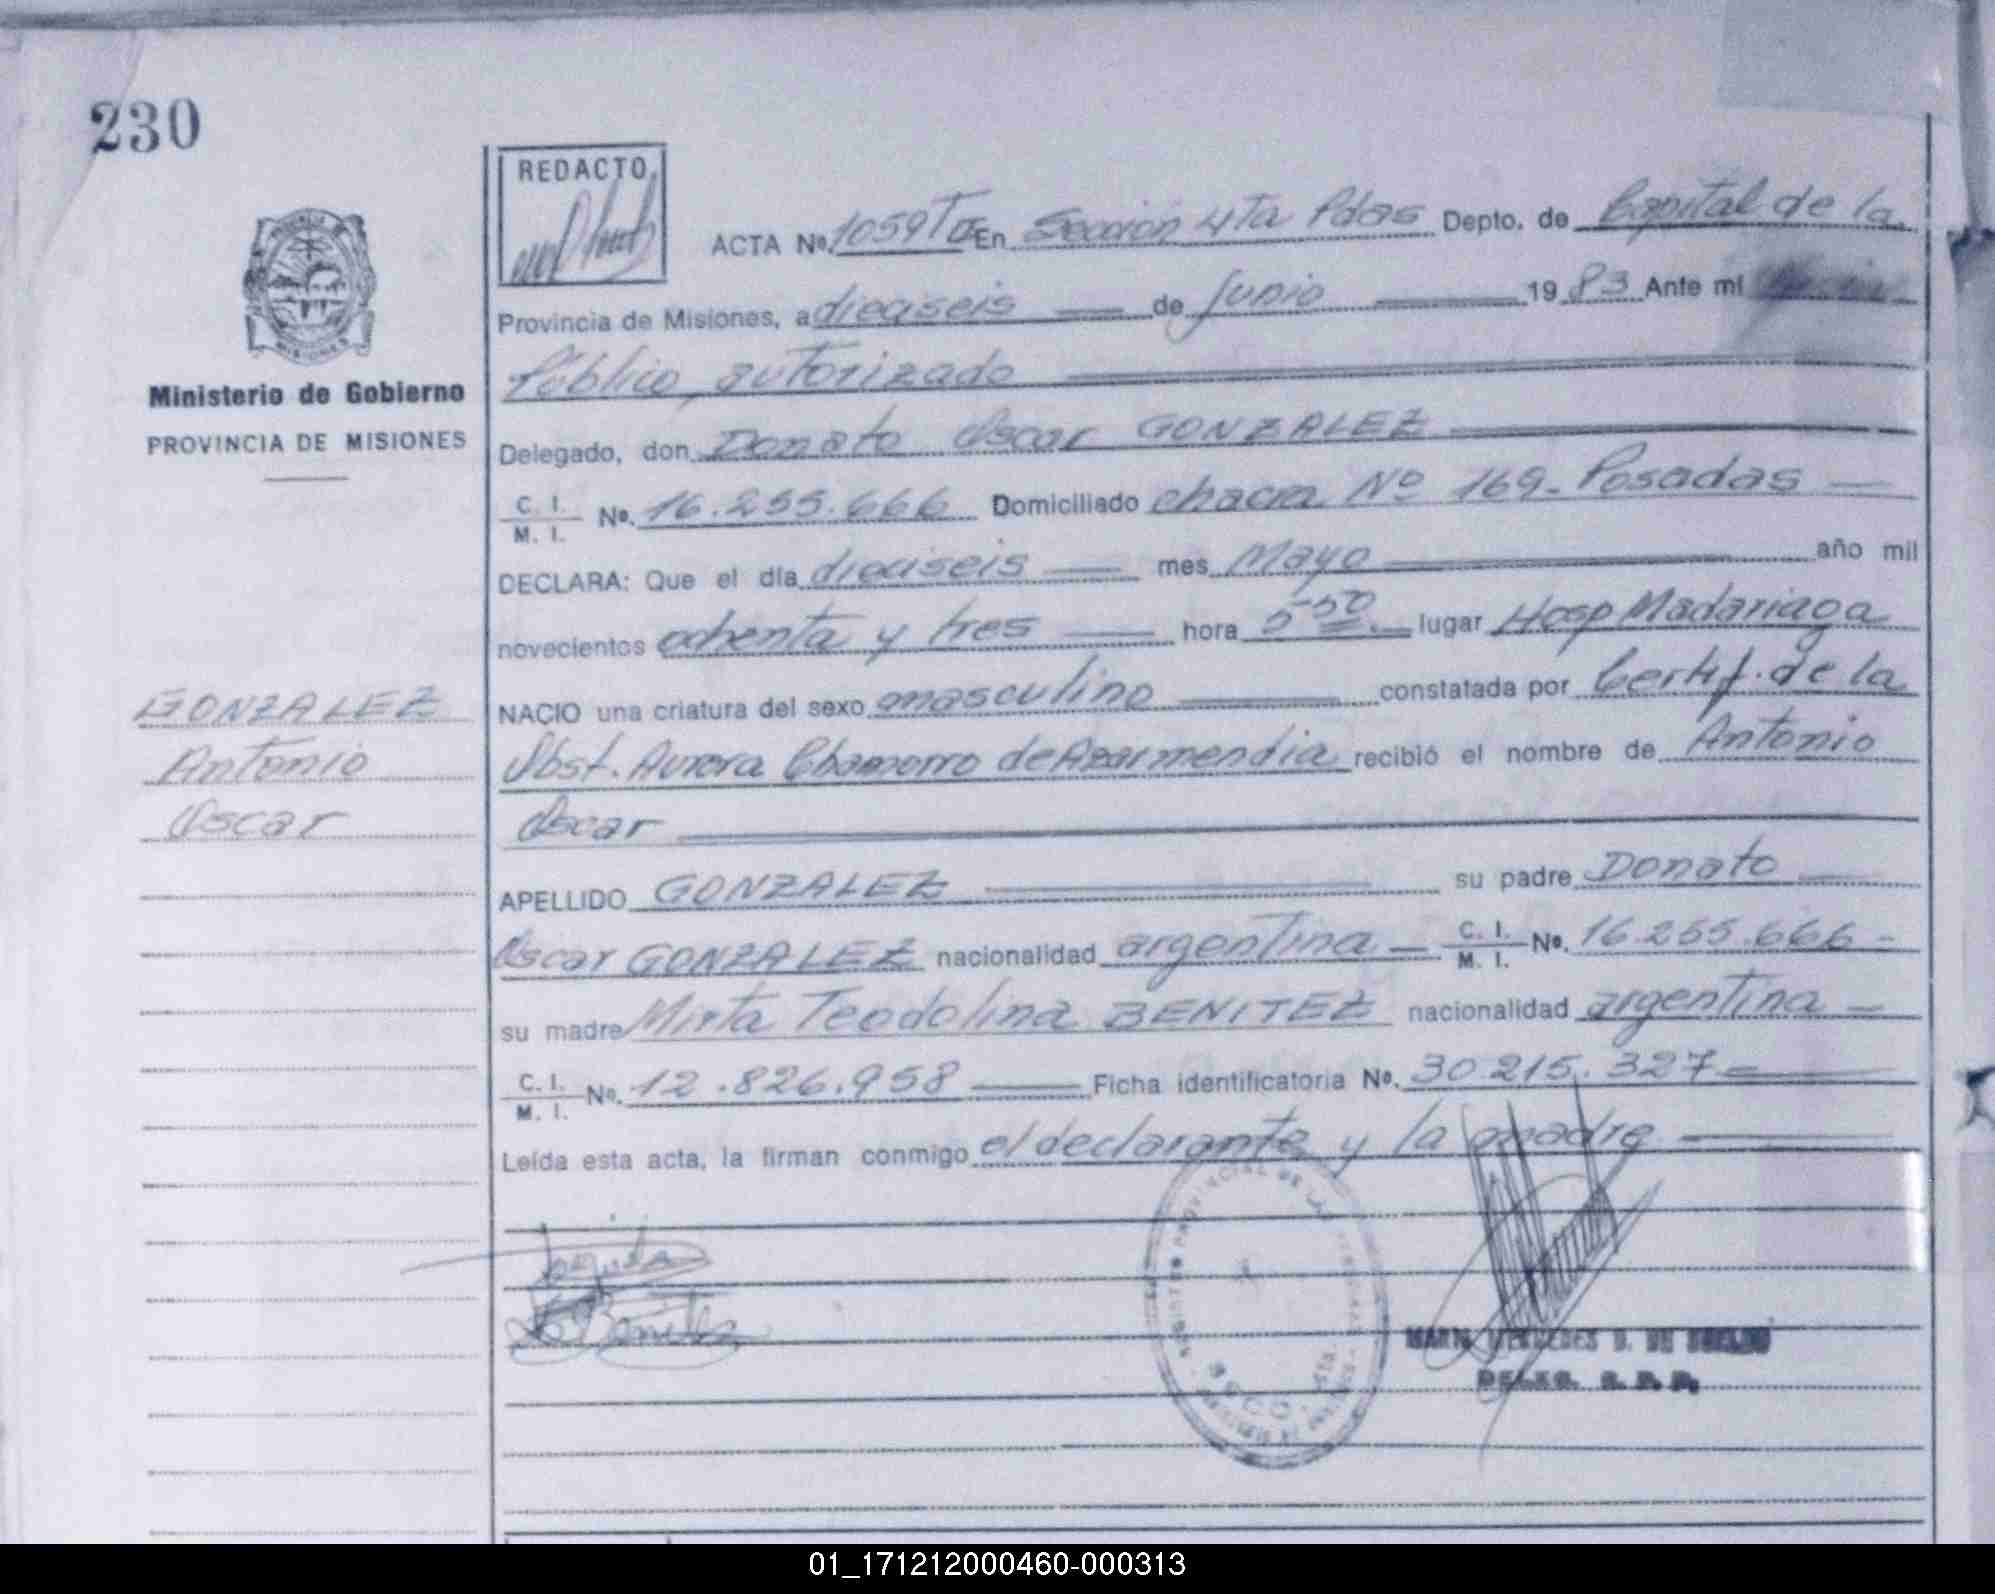 230
REDACTO
ACTA Nº 1059 Tº En Sección 4ta Pdas Depto. de Capital de la
Provincia de Misiones, a dieciseis de Junio 1983 Ante mí Oficial
Público, autorizado
Ministerio de Gobierno
PROVINCIA DE MISIONES
Delegado, don Donato Oscar GONZALEZ
C. I. / M. I. Nº. 16.255.666 Domiciliado chacra Nº 169- Posadas
DECLARA: Que el día dieciseis mes Mayo año mil
novecientos ochenta y tres hora 5-50 lugar Hosp Madariaga
GONZALEZ
Antonio
Oscar
NACIO una criatura del sexo masculino constatada por Certif. de la
Obst. Aurora Chamorro de Azarmendia recibió el nombre de Antonio
Oscar
APELLIDO GONZALEZ su padre Donato
Oscar GONZALEZ nacionalidad argentina C. I. / M. I. Nº. 16.255.666-
su madre Mirta Teodolina BENITEZ nacionalidad argentina
C. I. / M. I. Nº. 12.826.958 Ficha identificatoria Nº. 30.215.327
Leída esta acta, la firman conmigo el declarante y la madre
REGISTRO PROVINCIAL DE LAS PERSONAS
Benitez
MARIA MERCEDES D. DE
DELEG. R. P. P.
01_171212000460-000313